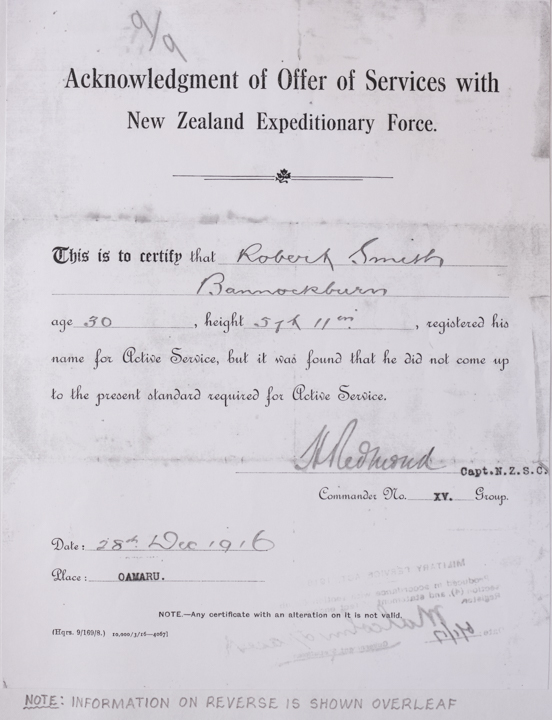 9/9
Acknowledgment of Offer of Services with
New Zealand Expeditionary Force.
This is to certify that Robert Smith
Bannockburn
age 30, height 5ft 11in, registered his
name for Active Service, but it was found that he did not come up
to the present standard required for Active Service.
H Redmond Capt. N.Z.S.C.
Commander No. XV. Group.
Date: 28th Dec 1916
Place: OAMARU.
NOTE.—Any certificate with an alteration on it is not valid.
(Hqrs. 9/169/8.) 10,000/3/16—4067]
NOTE: INFORMATION ON REVERSE IS SHOWN OVERLEAF